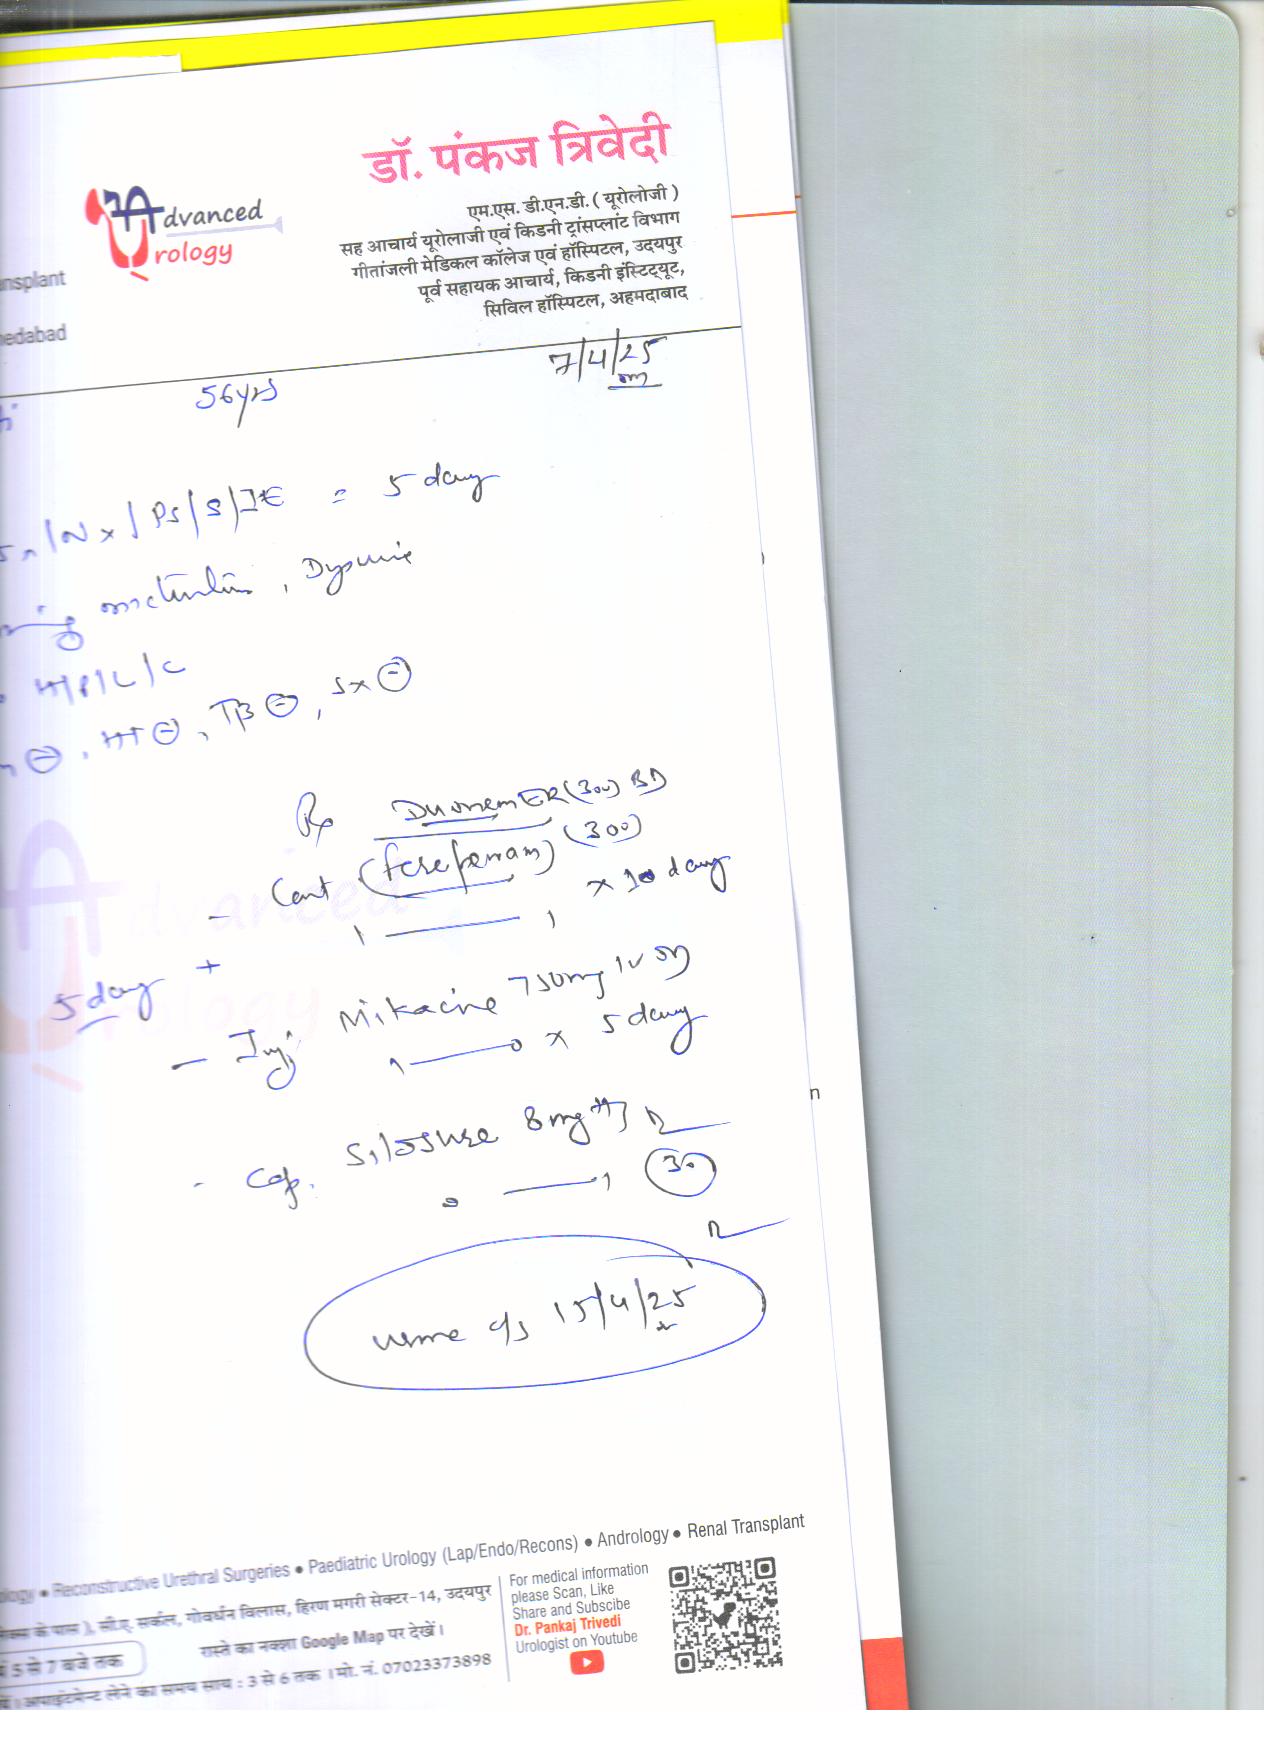 डॉ. पंकज त्रिवेदी
एम.एस. डी.एन.डी. ( यूरोलोजी )
सह आचार्य यूरोलाजी एवं किडनी ट्रांसप्लांट विभाग
गीतांजली मेडिकल कॉलेज एवं हॉस्पिटल, उदयपुर
पूर्व सहायक आचार्य, किडनी इंस्टिट्यूट,
सिविल हॉस्पिटल, अहमदाबाद
Advanced
Urology
ansplant
medabad
7/4/25
56yrs
/N x / Ps/S/ = 5 day
, Dysuria
H/P/L/C
⊖, HT ⊖, TB ⊖, Sx ⊖
Rx (300) BD
- Cont (faropenam) (300)
1 — 1 x 10 day
5 day +
- Inj Mikacine 750mg IV
1 — 0 x 5 day
- Cap. Silosure 8mg
0 — 1 (30)
c/s 15/4/25
ology ● Reconstructive Urethral Surgeries ● Paediatric Urology (Lap/Endo/Recons) ● Andrology ● Renal Transplant
के पास ), सी.ए. सर्कल, गोवर्धन विलास, हिरण मगरी सेक्टर-14, उदयपुर
रास्ते का नक्शा Google Map पर देखें।
5 से 7 बजे तक
अपाइंटमेन्ट लेने का समय साय : 3 से 6 तक । मो. नं. 07023373898
For medical information
please Scan, Like
Share and Subscibe
Dr. Pankaj Trivedi
Urologist on Youtube